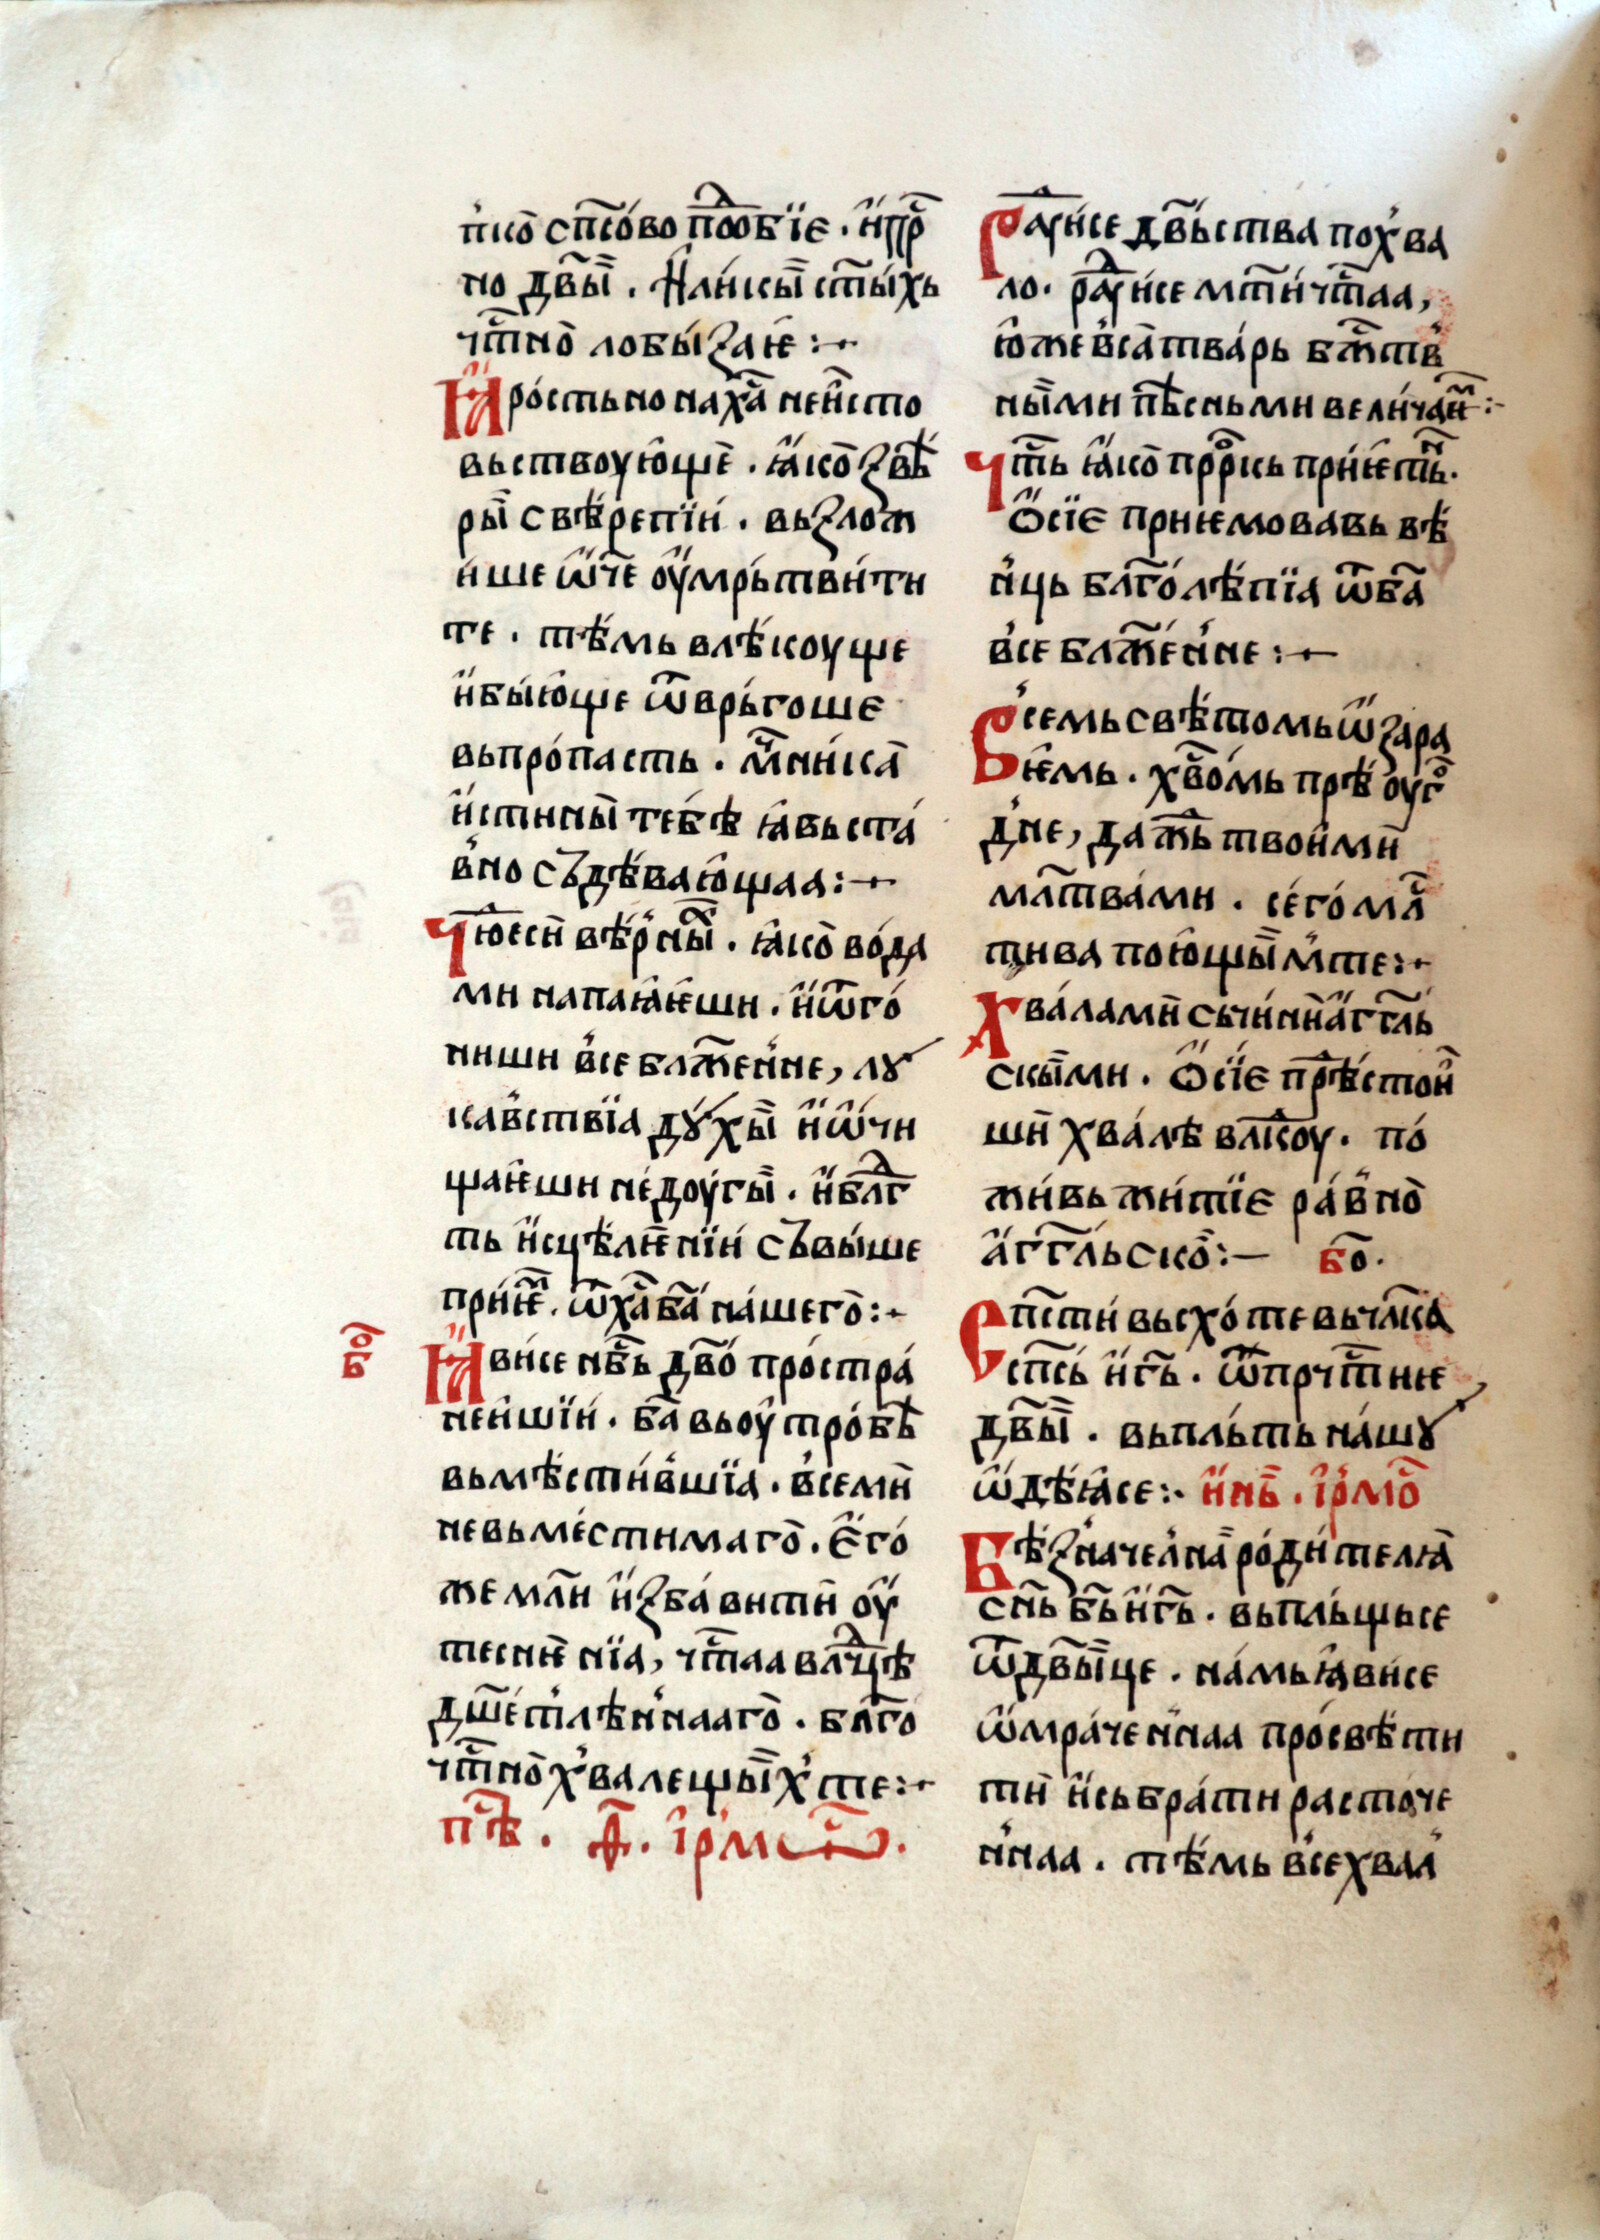 п҆ко̑ сп҃со́во подо́бїе . и҆ пр҃
но дв҃ы . и҆ ли́кы ст҃ы́хь
чт҃но̑ лобы́заѥ :~
Ꙗ҆́ростьно на х҃а неи҆сто
вьствоую҆ще . ꙗ҆ко̑ ѕвѣ́
ры свѣ́репїи . вьзлож
и́ше ѡ҆ч҃е оу҆мрь́твити
те . тѣ́мь влѣ́коуще
и҆ бы́ю҆ще ѿврь́гоше
вь про́пасть . мч҃ни́ка
и҆́стины тебѣ̀ ꙗ҆вьста́
в҆но съдѣ́ваю҆щаа :~
Чю҃еси вѣ́р҆ны . ꙗ҆ко̑ во́да
ми напаꙗ҆ѥши . и҆ ѿго́
ниши в҆се бл҃же́н҆не , лꙋ
ка́в҆ствїа дꙋ́хы и҆ ѡ҆чи
щаѥши не́доугы . и҆ бл҃г
ть и҆сцѣ́лѥнїи съвы́ше
при́ѥм . ѿ х҃а б҃а на́шего̑ :~
бо҃
Ꙗ҆ви́се нб҃ь дв҃о про́стра́
не́ишїи . б҃а вь оу҆тро́бѣ
вьмѣ́сти́в҆шїа . в҆семи
невьме́стимаго̑ . е҆го́
же мл҃и и҆збавити оу҆
теснѥ́нїа , чт҃аа вл҃чцѣ
дш҃е́тлѣн҆наго̑ . бл҃го
чт҃но̑ х҆валещы́х҆ те :~
пѣ҃ . ѳ҃ . і҆рмѡс .
Ра́д҃исе дв҃ьства пох҆ва
ло . ра́д҃исе мт҃и чт҃аа ,
ю҆же в҆са̀ тва́рь бж҃тв҆
ны́ми пѣ́сньми вели́чаѥт :~
Чт҃ь ꙗ҆ко̑ пр҃ркь приѥ́ть .
Ѡ҆сїе прииме́новавь вѣ
н҆ць бл҃голѣ́пїа ѿ б҃а
в҆се блаже́н҆не :~
В҆семь свѣ́томь ѡ҆зара
ѥмь . х҃во́мь прѣ̀оуго
дне , даждь твои́ми
мл҃тва́ми . се́го мл҃
тива пою҆щы́м҆ те :~
Хва́лами сьчини а҆гг҃ль
скы́ми . Ѡ҆сїе прѣ́стои҆
ши хва́лѣ вл҃коу . по́
жи́вь жи́тїе ра́в҆но̑
а҆гг҃льско̑ :~ бо҃ .
Сп҃сти́ вьсхо́те вь чл҃ка
сп҃сь и҆ г҃ь . ѿ прчт҃иѥ
дв҃ы . вьпль́ть на́шꙋ
ѡ҆дѣꙗ҆се :~ и҆ нн҃ѣ . і҆рмо҃
Бѣзначел҆на̀ роди́телꙗ
сн҃ь б҃ь и҆ г҃ь . вьпль́щьсе
ѿ дв҃ы́це . на́мь ꙗ҆ви́се
ѡ҆мра́чен҆наа про́свѣти
ти и҆ сьбра́ти расточе
н҆наа . тѣ́мь в҆сехвал҆